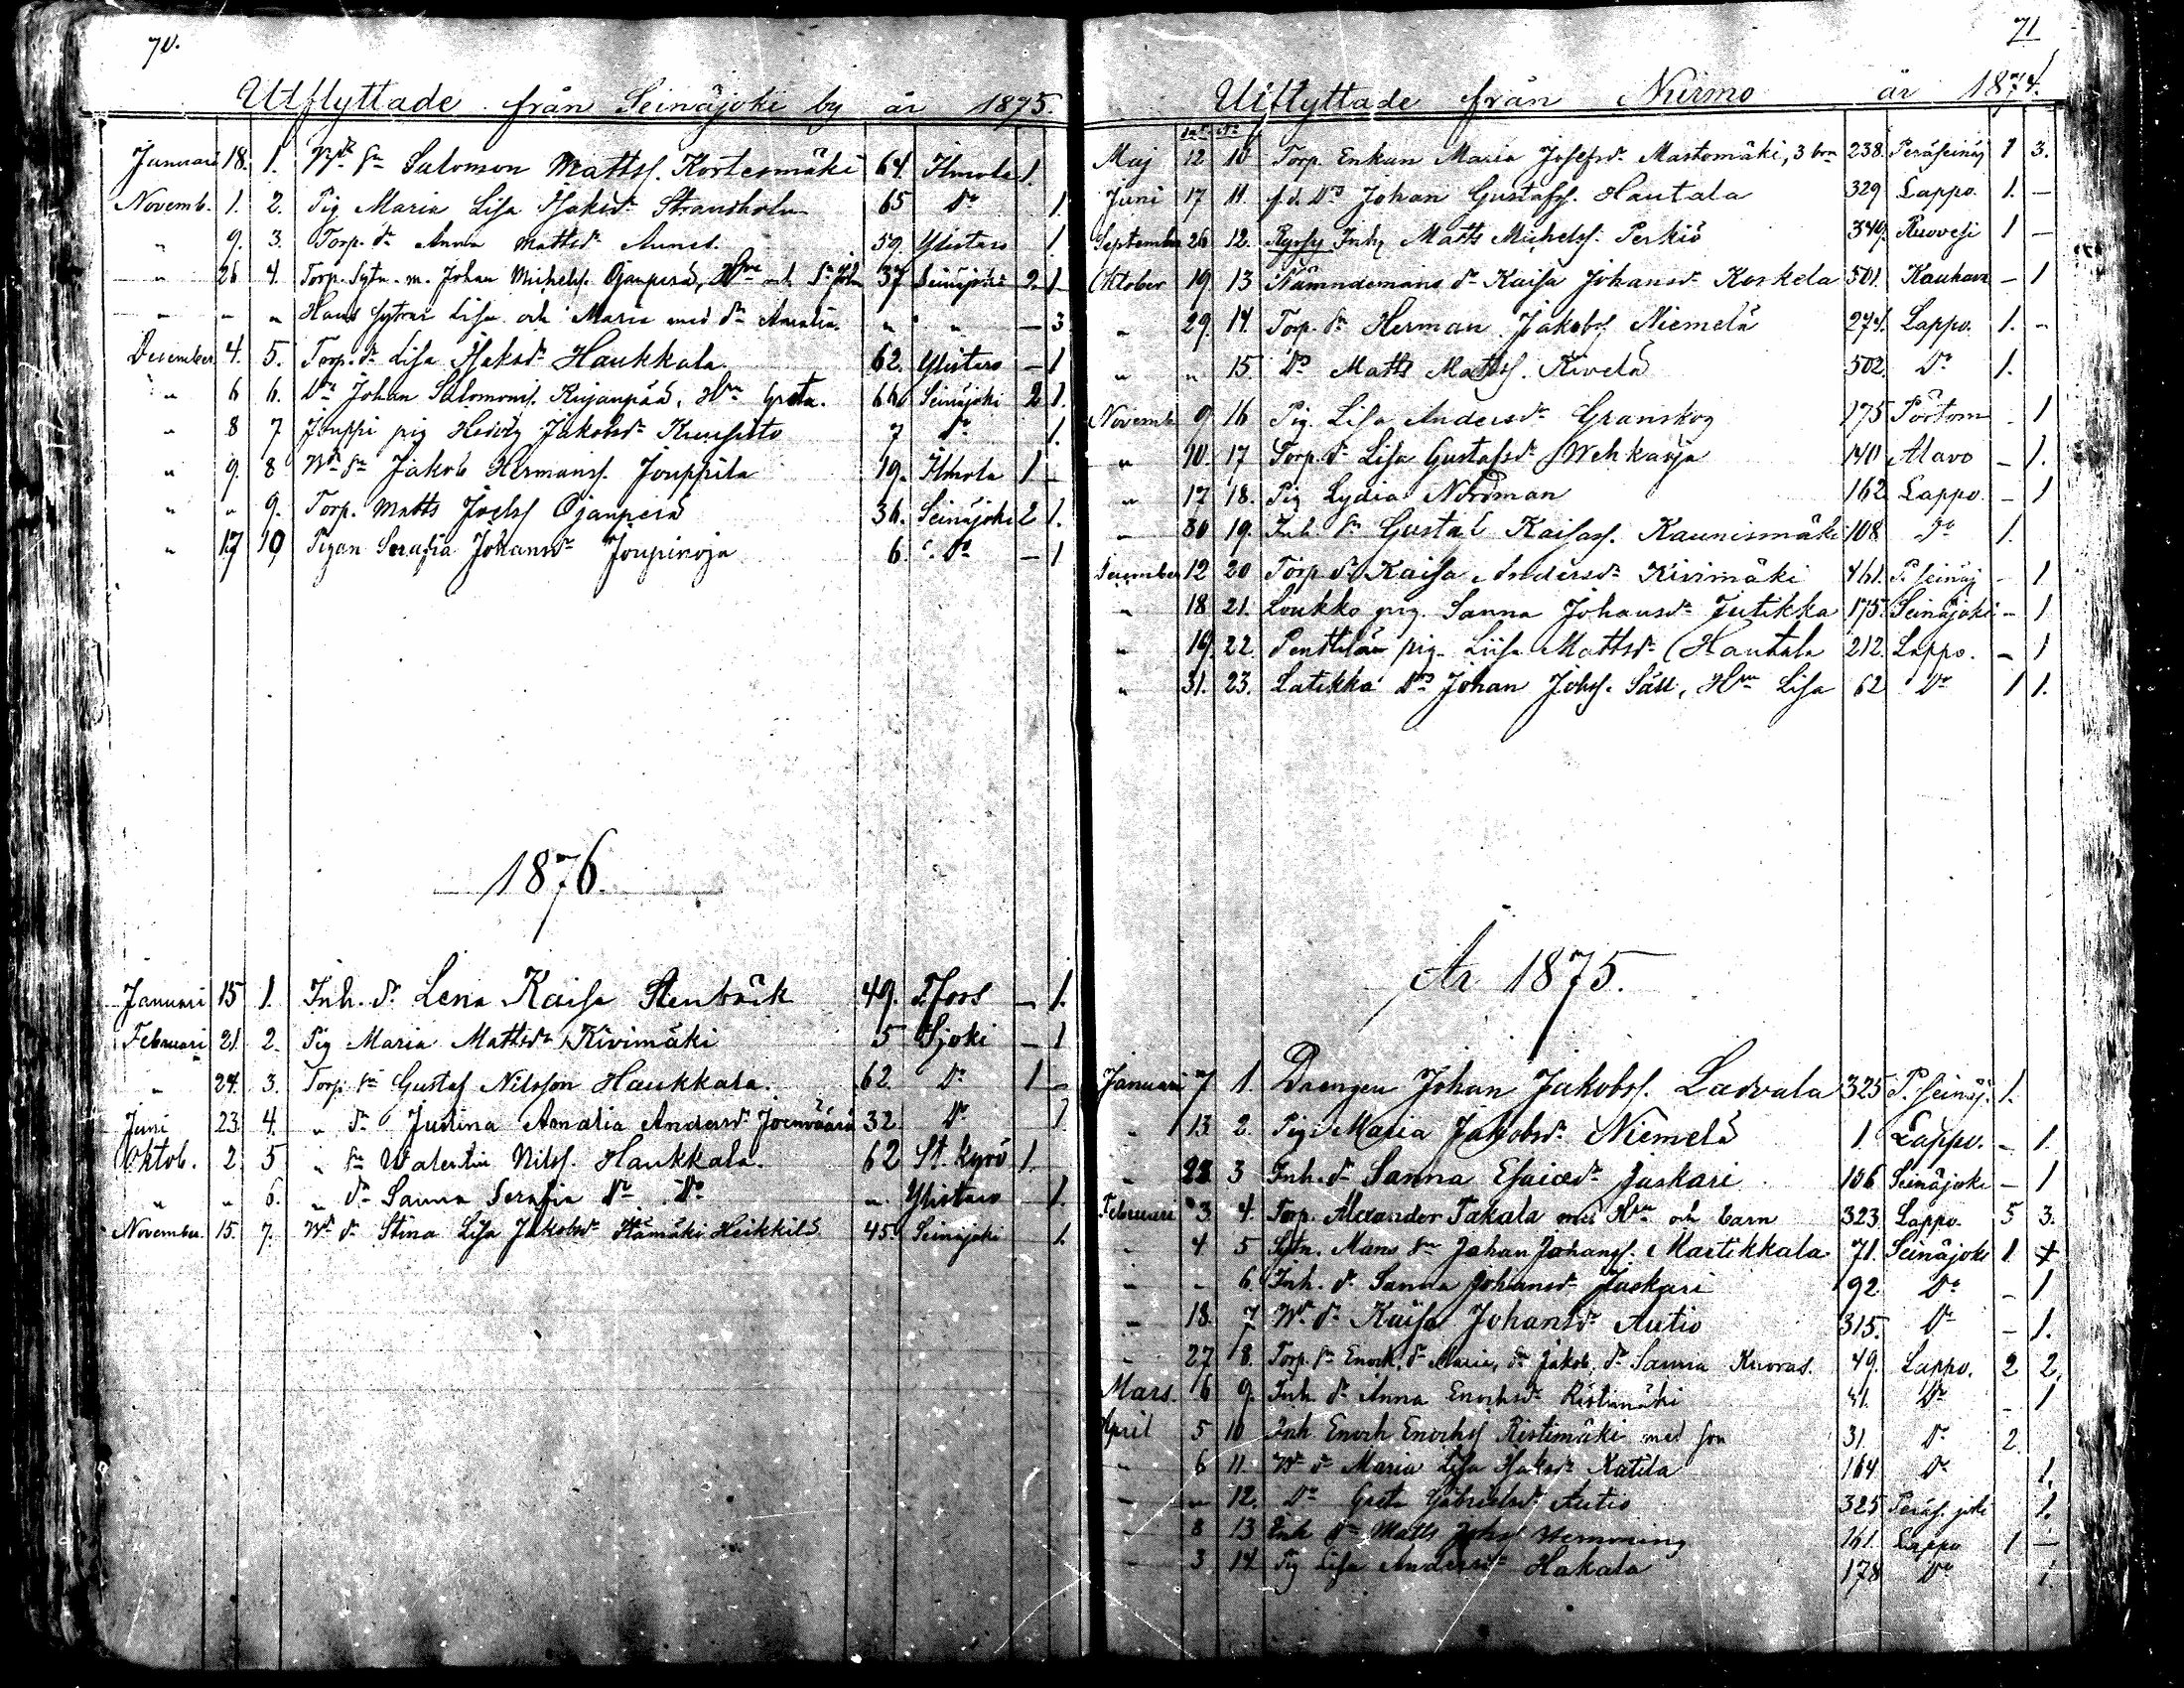 70.
Utflyttade från Seinäjoki by år 1875.
Januari 18. 1. Salomon Mattss. Kortesmäki 64. Ilmola 1.
Novemb. 1. 2. Pig Maria Lisa Isaksdr Strandholm 65 Do 1.
" 9. 3. Torp. dr Anna Mattsdr 59 Ylistaro 1
" 26 4. Torp. Sytn. m. Johan Michelss. Ojanperä, Hru och Sn Joh 37 Seinäjoki 2 1
" " " Hans Lisa och Maria med dr Amalia " " — 3
Desember 4. 5. Torp. dr Lisa Isaksdr Haukkala 62. Ylistaro — 1
" 6 6. Johan Salomons. Hru Greta. 66 Seinäjoki 2 1.
" 8 7 Jouppi pig Hedvig Jakobsdr 7 Do 1.
" 9. 8 Jakob Hermanss. Jouppila 19. Ilmola 1 —
" " 9. Torp. Matts Joelss Ojanperä 36. Seinäjoki 2 1.
" 17 10 Pigan Serafia Johansdr Joupinoja 6. Do — 1
1876.
Januari 15 1. Inh. dr Lena Kaisa Stenbäck 49. — 1.
Februari 21. 2. Pig Maria Mattsdr Kivimäki 5 Sjoki — 1
" 24. 3. Torp. sn Gustaf Nilsson Haukkala. 62. Do 1 —
Juni 23 4. " dr Justina Amalia Andersdr 32. Do 1
Oktob. 2. 5 " sn Walentin Nilss. Haukkala. 62 St. Kyrö 1.
" " 6. " dr Sanna Serafia Do Do " Ylistaro 1.
November. 15. 7. dr Stina Lisa Jakobsdr Heikkilä 45. Seinäjoki 1.
71
Utflyttade från Nurmo år 1874.
Maj 12 10 Torp. Enkan Maria Josefsdr Mastomäki, 3 brn 238. Peräseinäj 1 3.
Juni 17 11. f.d. Johan Gustafss. Hautala 329 Lappo. 1. —
September 26 12. Inh. Matts Michelss. Perkiö 349. Ruovesi 1 —
Oktober 19. 13 Nämndemans dr Kaisa Johansdr Koskela 501. Kauhava — 1
" 29. 14. Torp. sn Herman Jakobss Niemelä 274. Lappo. 1. —
" " 15. Do Matts Mattss. Kivelä 502. Do 1.
Novemb. 9 16 Pig. Lisa Andersdr Granskog 175 Pörtom — 1
" 10. 17 Torp. dr Lisa Gustafsdr 140 Alavo — 1.
" 17 18. Pig Lydia Nordman 162 Lappo. — 1
" 30 19. Inh. sn Gustaf Kaisass. Kaunismäki 108 Do 1.
Desember 12 20 Torp. dr Kaisa Andersdr Kivimäki 461. P. seinäj — 1
" 18 21. Loukko pig. Sanna Johansdr Jutikka 175. Seinäjoki — 1
" 19. 22. Penttilän pig. Liisa Mattsdr Hautala 212. Lappo. — 1
" 31. 23. Latikka Johan Johss. Säll, Hru Lisa 62 Do 1 1.
År 1875.
Januari 7 1. Drengen Johan Jakobss. Ladvala 325 P. seinäj. 1.
" 13 2. Pig. Maria Jakobsdr Niemelä 1. Lappo. — 1.
" 22 3 Inh. dr Sanna Esaiædr Jaskari 106 Seinäjoki — 1
Februari 3 4. Torp. Alexander Takala med Hru och barn 323. Lappo. 5 3.
" 4 5 Sytn. Mans sn Johan Johanss. Martikkala 71. Seinäjoki 1
" " 6. Inh. dr Sanna Johansdr Jaskari 92 Do — 1
" 18. 7 dr Kaisa Johansdr Autio 315. Do — 1.
" 27 8. Torp. sn Enoch, dr Maria, sn Jakob, dr Sanna Kuoras. 49. Lappo. 2 2.
Mars. 6 9. Inh. dr Anna Enochsdr Ristimäki 31. Do — 1
April 5 10 Inh. Enoch Enochss Ristimäki med son 31. Do 2.
" 6 11. dr Maria Lisa Isaksdr Katila 164 Do 1.
" " 12. Do Greta Gabrielsdr Autio 325 Peräs. joki 1.
" 8 13 Inh. Matts Johss 161 Lappo 1 —
" 3. 14. Pig Lisa Andersdr Hakala 178 Do 1.